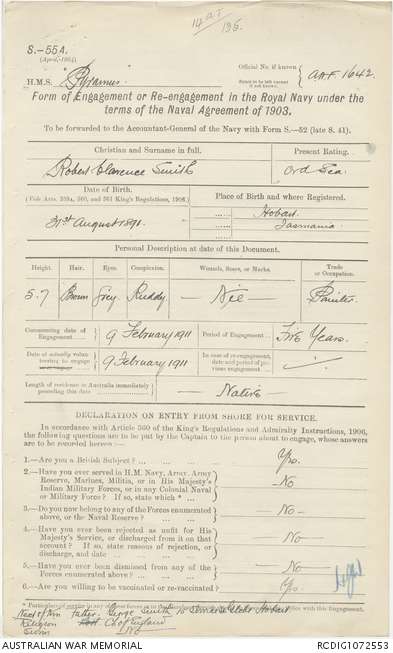 S.—55A.
(April, 1904)
H.M.S. "Pyramus"
Official No. if known
AAF 1642.
Form of Engagement or Re-engagement in the Royal Navy under the
terms of the Naval Agreement of 1903.
To be forwarded to the Accountant-General of the Navy with Form S.—52 (late S. 41).
Christian and Surname in full. Present Rating.
Robert Clarence Smith Ord Sea.
Date of Birth. Place of Birth and where Registered.
31st August 1891. Hobart
Tasmania
Personal Description at date of this Document.
Height. Hair. Eyes. Complexion. Wounds, Scars, or Marks. Trade or Occupation.
5.7 Brown Grey Ruddy — Nil — Painter
Commencing date of Engagement 9 February 1911 Period of Engagement Five Years.
Date of actually volunteering to engage 9 February 1911 In case of re-engagement, date and period of previous engagement
Length of residence in Australia immediately preceding this date — Native —
DECLARATION ON ENTRY FROM SHORE FOR SERVICE.
In accordance with Article 360 of the King's Regulations and Admiralty Instructions, 1906,
the following questions are to be put by the Captain to the person about to engage, whose answers
are to be recorded hereon:—
1.—Are you a British Subject? Yes.
2.—Have you ever served in H.M. Navy, Army, Army
Reserve, Marines, Militia, or in His Majesty's
Indian Military Forces, or in any Colonial Naval
or Military Force? If so, state which * — No
3.—Do you now belong to any of the Forces enumerated
above, or the Naval Reserve? — No —
4.—Have you ever been rejected as unfit for His
Majesty's Service, or discharged from it on that
account? If so, state reasons of rejection, or
discharge, and date No
5.—Have you ever been dismissed from any of the
Forces enumerated above? — No —
6.—Are you willing to be vaccinated or re-vaccinated? Yes.
Next of kin father George Smith Hobart
Religion Ch of England
AUSTRALIAN WAR MEMORIAL RCDIG1072553